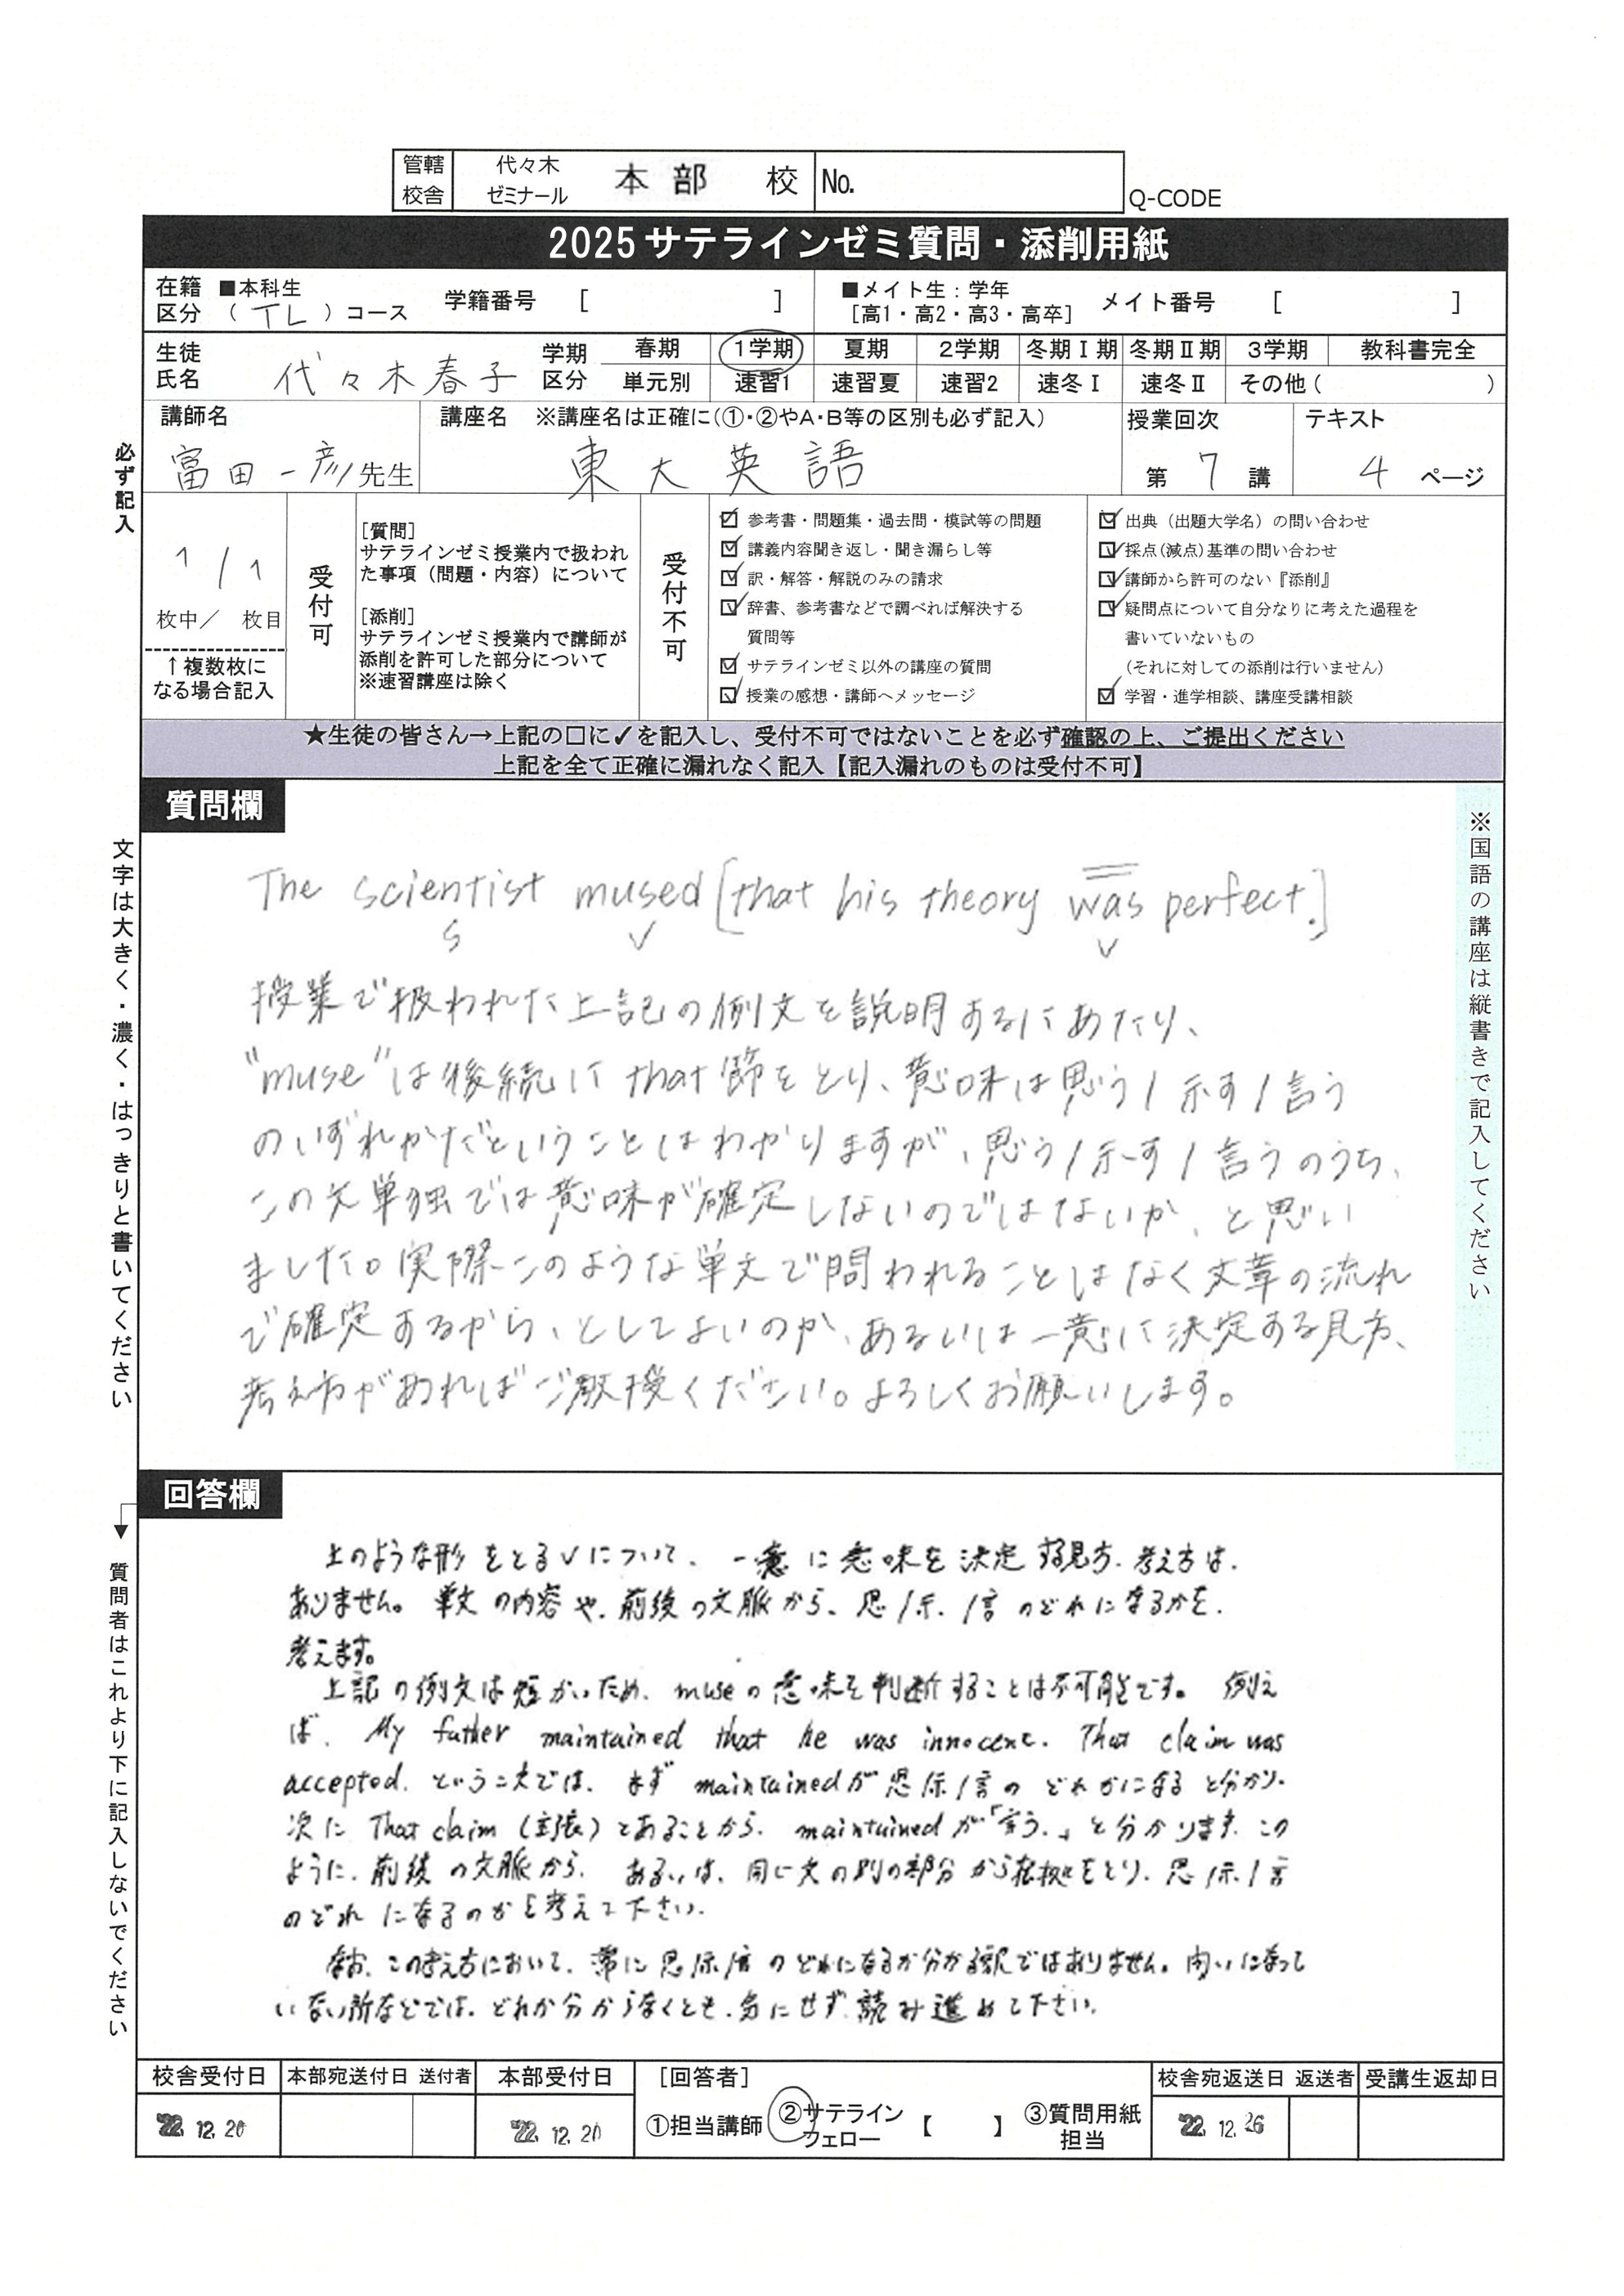 管轄校舎 代々木ゼミナール 本部 校 No.
Q-CODE
2025 サテラインゼミ質問・添削用紙
在籍区分 ■本科生 (TL)コース 学籍番号 [ ] ■メイト生：学年 [高1・高2・高3・高卒] メイト番号 [ ]
生徒氏名 代々木春子 学期区分 春期 1学期 夏期 2学期 冬期Ⅰ期 冬期Ⅱ期 3学期 教科書完全
単元別 速習1 速習夏 速習2 速冬Ⅰ 速冬Ⅱ その他( )
講師名 講座名 ※講座名は正確に(①・②やA・B等の区別も必ず記入) 授業回次 テキスト
富田一彦先生 東大英語 第7講 4ページ
必ず記入
1/1
枚中／ 枚目
↑複数枚になる場合記入
受付可
[質問]
サテラインゼミ授業内で扱われ
た事項（問題・内容）について
[添削]
サテラインゼミ授業内で講師が
添削を許可した部分について
※速習講座は除く
受付不可
☑ 参考書・問題集・過去問・模試等の問題
☑ 講義内容聞き返し・聞き漏らし等
☑ 訳・解答・解説のみの請求
☑ 辞書、参考書などで調べれば解決する
質問等
☑ サテラインゼミ以外の講座の質問
☑ 授業の感想・講師へメッセージ
☑ 出典（出題大学名）の問い合わせ
☑ 採点(減点)基準の問い合わせ
☑ 講師から許可のない『添削』
☑ 疑問点について自分なりに考えた過程を
書いていないもの
（それに対しての添削は行いません）
☑ 学習・進学相談、講座受講相談
★生徒の皆さん→上記の□に✓を記入し、受付不可ではないことを必ず確認の上、ご提出ください
上記を全て正確に漏れなく記入【記入漏れのものは受付不可】
質問欄
※国語の講座は縦書きで記入してください
文字は大きく・濃く・はっきりと書いてください
The scientist mused [that his theory was perfect.]
S V V
授業で扱われた上記の例文を説明するにあたり、
"muse"は後続に that 節をとり、意味は思う/示す/言う
のいずれかだということはわかりますが、思う/示す/言うのうち、
この文単独では意味が確定しないのではないか、と思い
ました。実際このような単文で問われることはなく文章の流れ
で確定するから、としてよいのか、あるいは一意に決定する見方、
考え方があればご教授ください。よろしくお願いします。
回答欄
質問者はこれより下に記入しないでください
上のような形をとるVについて、一意に意味を決定する見方、考え方は、
ありません。単文の内容や、前後の文脈から、思/示/言のどれになるかを、
考えます。
上記の例文は短かいため、museの意味を判断することは不可能です。例え
ば、My father maintained that he was innocent. That claim was
accepted. という文では、まず maintainedが思/示/言の どれかになると分かり、
次に That claim (主張) とあることから、maintainedが「言う」と分かります。この
ように、前後の文脈から、あるいは、同じ文の別の部分から根拠をとり、思/示/言
のどれになるのかを考えて下さい。
なお、この考え方において、常に思/示/言のどれになるか分かる訳ではありません。問いになって
いない所などでは、どれか分からなくとも、気にせず、読み進めて下さい。
校舎受付日 本部宛送付日 送付者 本部受付日 [回答者] 校舎宛返送日 返送者 受講生返却日
'22. 12. 20 '22. 12. 20 ①担当講師 ②サテラインフェロー 【 】 ③質問用紙担当 '22. 12. 26